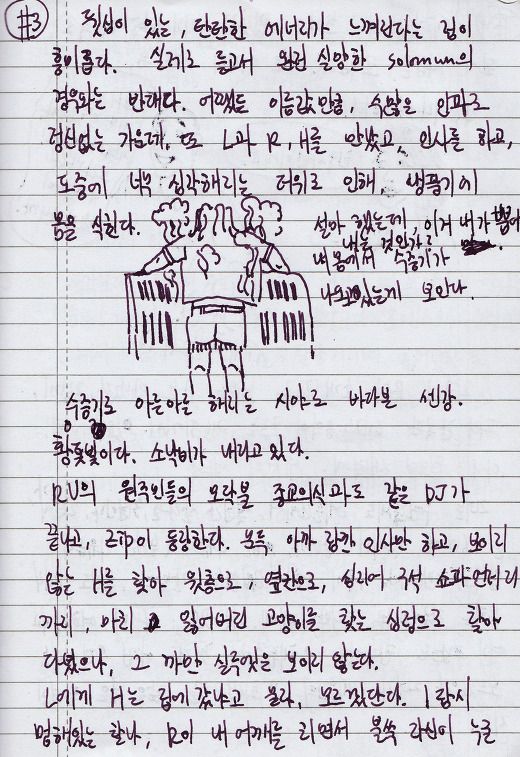 #3
뒷심이 있는, 탄탄한 에너지가 느껴진다는 점이
흥미롭다. 실제로 듣고서 완전 실망한 solomun의
경우와는 반대다. 어쨌든 이름값만큼, 수많은 인파로
정신없는 가운데, 또 L과 R, H를 만났고, 인사를 하고,
도중에 너무 심각해지는 더위로 인해, 쌩풍기에
몸을 식힌다.
설마 했는데, 이거 내가
내는 것인가?
내 몸에서 수증기가
나오고있는게 보인다.
수증기로 아른아른 해지는 시야로 바라본 센강.
황톳빛이다. 소낙비가 내리고 있다.
RU의 원주민들의 모닥불 종교의식과도 같은 DJ가
끝나고, ZIP이 등장한다. 문득 아까 잠깐 인사만 하고, 보이지
않는 H를 찾아 윗층으로, 옆칸으로, 심지어 구석 쇼파 언저리
까지, 마치 잃어버린 고양이를 찾는 심정으로 찾아
다녔으나, 그 까만 실루엣은 보이지 않는다.
L에게 H는 집에 갔냐고 물자, 모르겠단다. 잠시
멍해있는 찰나, R이 내 어깨를 치면서 불쑥 자신이 누굴